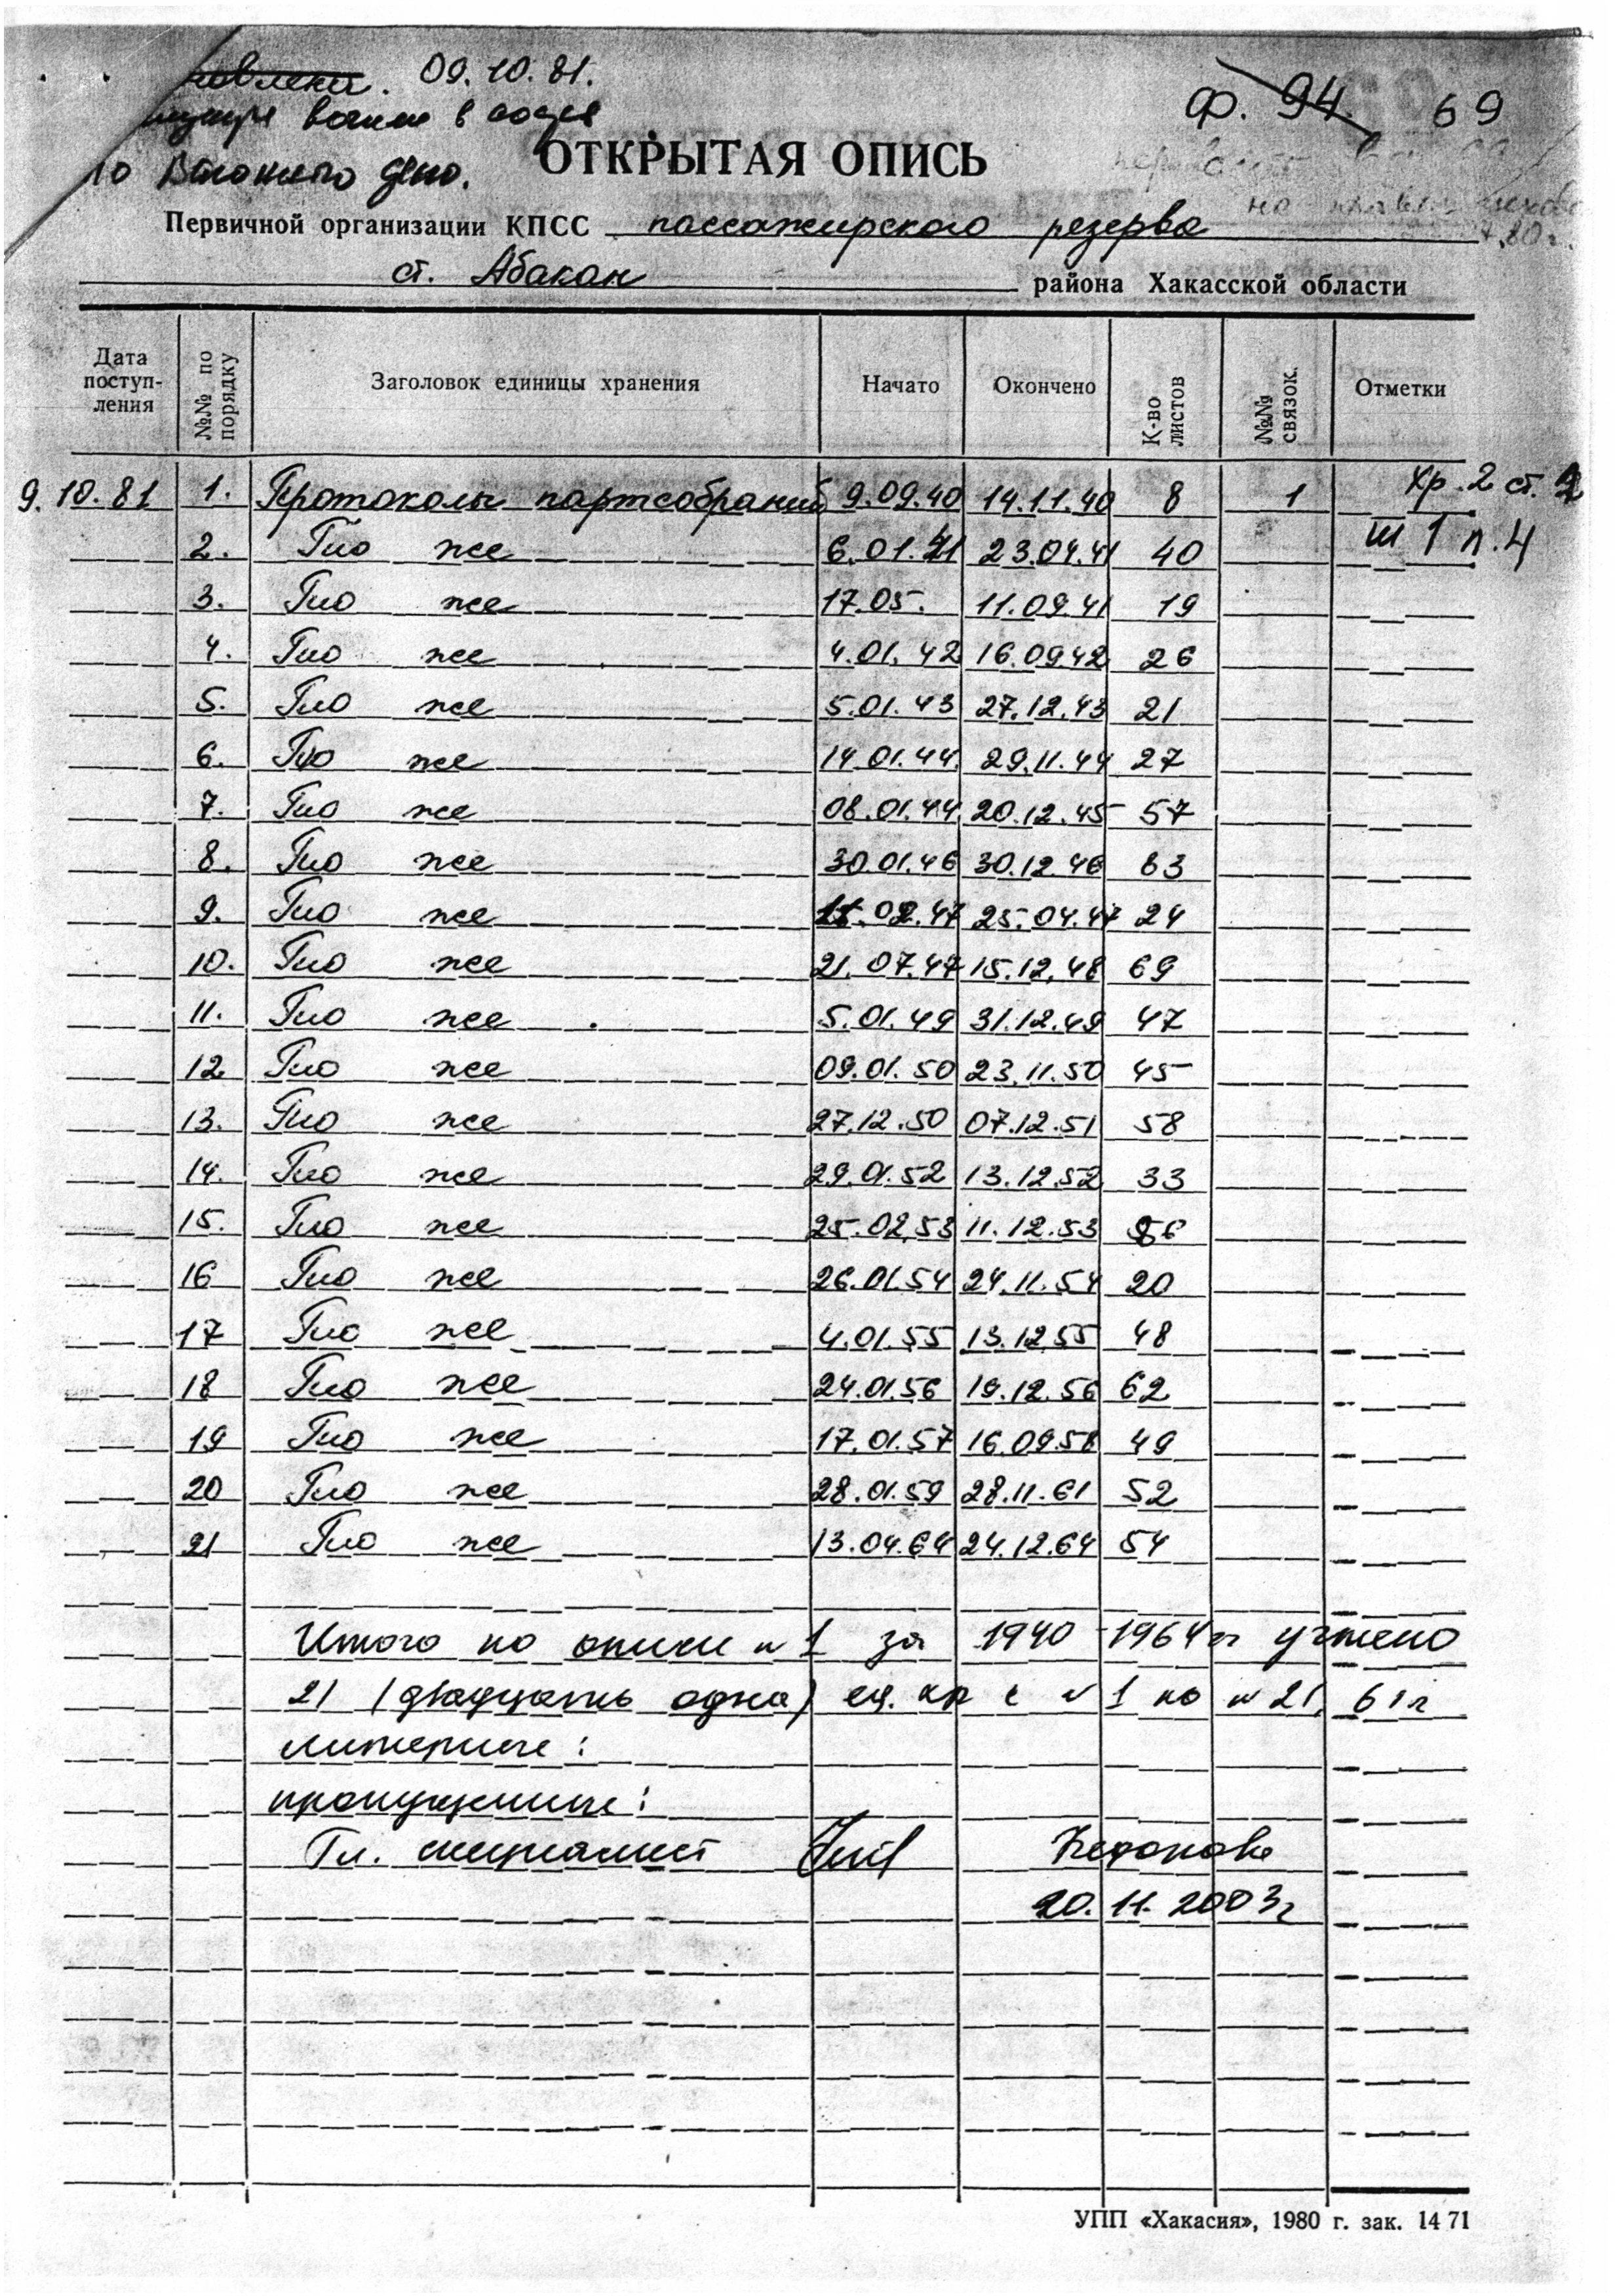 09.10.81.
Ф. 94. 69
ОТКРЫТАЯ ОПИСЬ
Первичной организации КПСС пассажирского резерва
ст. Абакан района Хакасской области
Дата поступ- ления №№ по порядку Заголовок единицы хранения Начато Окончено К-во листов №№ связок. Отметки
9.10.81 1. Протоколы партсобраний 9.09.40 14.11.40 8 1 Хр. 2 ст. 2
2. То же 6.01.41 23.04.41 40 ш 1 п. 4
3. То же 17.05. 11.09.41 19
4. То же 4.01.42 16.09.42 26
5. То же 5.01.43 27.12.43 21
6. То же 14.01.44. 29.11.44 27
7. То же 08.01.44 20.12.45 57
8. То же 30.01.46 30.12.46 63
9. То же 02.47 25.04.47 24
10. То же 21.07.47 15.12.48 69
11. То же 5.01.49 31.12.49 47
12. То же 09.01.50 23.11.50 45
13. То же 27.12.50 07.12.51 58
14. То же 29.01.52 13.12.52 33
15. То же 25.02.53 11.12.53
16 То же 26.01.54 24.11.54 20
17 То же 4.01.55 13.12.55 48
18 То же 24.01.56 19.12.56 62
19 То же 17.01.57 16.09.58 49
20 То же 28.01.59 28.11.61 52
21 То же 13.04.64 24.12.64 54
Итого по описи № 1 за 1940-1964 гг учтено
21 (двадцать одна) ед. хр с № 1 по № 21,
литерные:
пропущенные:
Гл. специалист
20.11.2003г
УПП «Хакасия», 1980 г. зак. 1471